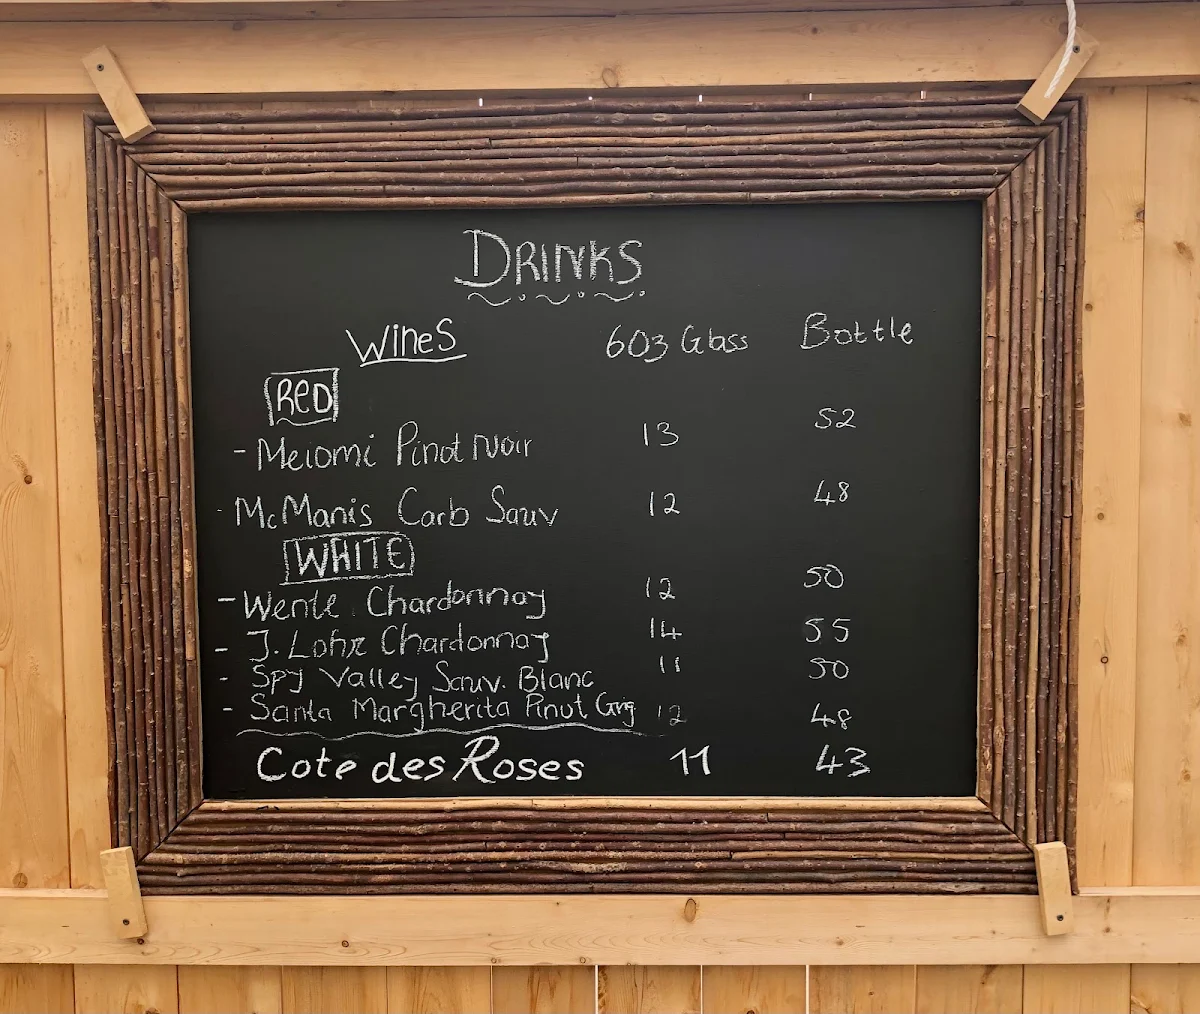 DRINKS
Wines 603 Glass Bottle
RED
- Meiomi Pinot Noir 13 52
- McManis Carb Sauv 12 48
WHITE
- Wente Chardonnay 12 50
- J. Lohr Chardonnay 14 55
- Spy Valley Sauv. Blanc 11 50
- Santa Margherita Pinot Grig 12 48
Cote des Roses 11 43